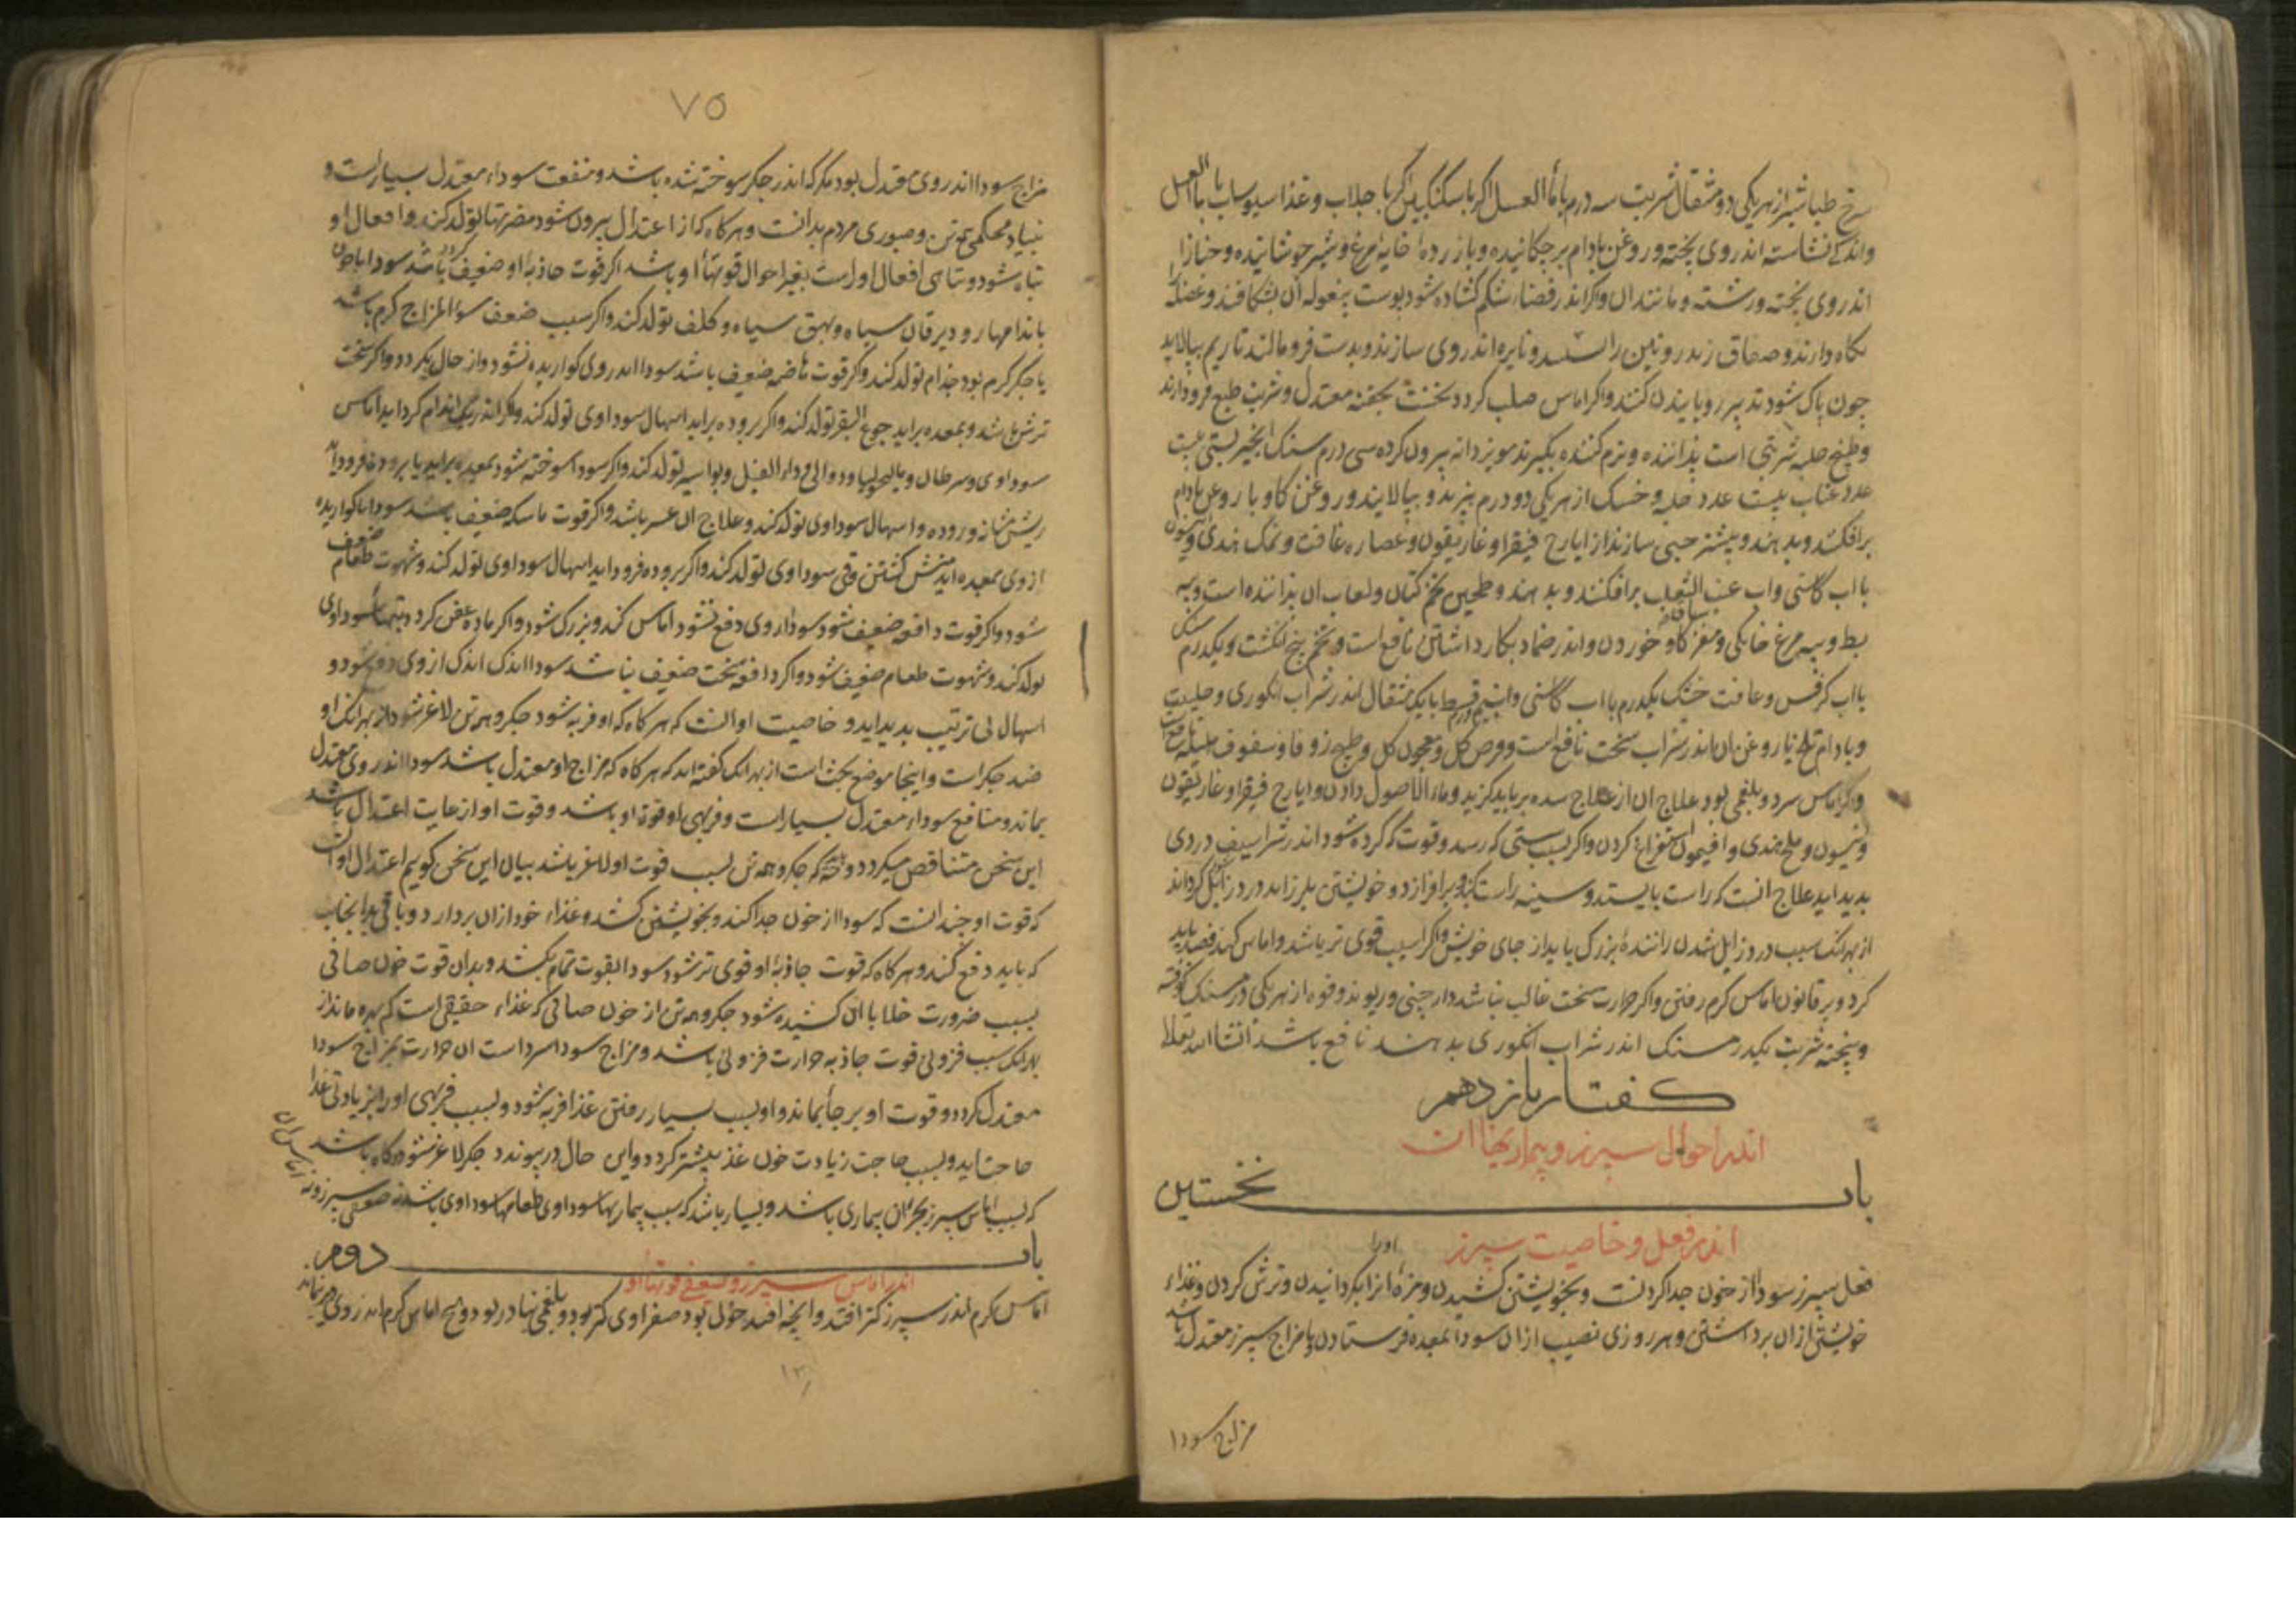 سرخ طباشیر از هر یکی دو مثقال شربت سه درم با ماء العسل اکر با سکنکبین اکر با جلاب و غذا سبوساب با ماء العسل
واندکی نشاسته اندر وی پخته و روغن بادام برچکانیده و با زرده خایه مرغ نیم جوشانیده و خبازا
اندر وی پخته و رشته و مانند ان و اکر اندر فضاء شکم کشاده شود پوست بیغوله ان بشکافند و عضله
نکاه دارند و صفاق زیرروئین را و نایره اندر وی سازند و بدست فرو مالند تا ریم بپالاید
جون پاک شود تدبیر رویانیدن کنند و اکر اماس صلب کردد نخست بحقنه معتدل و شربت طبع فرود ارند
و طبیخ حلبه شربتی است پزاننده و نرم کننده بکیرند مویز دانه بیرون کرده سی درم سنک انجیر بستی بیست
عدد عناب بیست عدد حلبه و خسک از هر یکی دو درم بپزند و بپالایند و روغن کاو با روغن بادام
برافکنند و بدهند و بیشتر حبی سازند از ایارج فیقرا و غاریقون و عصاره غافت و نمک هندی و انیسون
با اب کاسنی و اب عنب الثعلب برافکنند و بدهند و طحین تخم کتان و لعاب ان پزاننده است و پیه
بط و پیه مرغ خانکی و مغز ساق کاو خوردن و اندر ضماد بکار داشتن نافع است و تخم پنج انکشت و یکدرم سنک
با اب کرفس و غافت خشک یکدرم با اب کاسنی و قسط یا یک مثقال اندر شراب انکوری و حلتیت
و بادام تلخ یا روغن ان اندر شراب سخت نافع است و قرص کل و معجون کل و طبیخ زوفا و سفوف
و اکر اماس سرد و بلغمی بود علاج ان از علاج سده برباید کزید و ماء الاصول دادن و ایارج فیقرا و غاریقون
و انیسون و ملح هندی و افتیمون استفراغ کردن و اکر بسبب سستی که رسد و قوت که کرده شود اندر شراسیف دردی
بدید اید علاج انست که راست بایستد و سینه راست کند و برافرازد و خویشتن بلرزاند درد زایل کرداند
از بهر انک سبب درد زایل شدن راننده بزرک باید از جای خویش و اکر اسبب قوی تر باشد و اماس کند فصد باید
کرد و بر قانون اماس کرم رفتن و اکر حرارت سخت غالب نباشد دارجینی و ریوند و فوه از هر یکی درمسنک کوفته
و بیخته شربت یکدرمسنک اندر شراب انکوری بدهند نافع باشد انشا الله تعالی
کفتار یازدهم
اندر احوال سپرز و بیماریهاء ان
باب نخستین
اندر فعل و خاصیت سپرز
فعل سپرز سودا از خون جدا کردنست و بخویشتن کشیدن و مزه او را بکردانیدن و ترش کردن و غذاء
خویش از ان برداشتن و هر روزی نصیب از ان سودا بمعده فرستادن با مزاج سپرز معتدل باشد
مزاج سودا
۷۵
مزاج سودا اندر وی معتدل بود مکر که اندر جکر سوخته شده باشد و منفعت سوداء معتدل بسیار است و
بنیاد محکمی تن و صبوری مردم بدانست و هرکاه که از اعتدال بیرون شود مضرتها تولد کند و افعال او
تباه شود و تباهی افعال او است بتغیر احوال قوتهاء او باشد اکر قوت جاذبه او ضعیف کردد سودا با خون
باندامها رود یرقان سیاه و بهق سیاه و کلف تولد کند و اکر سبب ضعف سوء المزاج کرم باشد
یا جکر کرم بود جذام تولد کند و اکر قوت هاضمه ضعیف باشد سودا اندر وی کواریده نشود و از حال بکردد و اکر سخت
ترش باشد و بمعده براید جوع البقر تولد کند و اکر بروده براید اسهال سوداوی تولد کند و اکر اندر یک اندام کرد اید اماس
سوداوی و سرطان و مالیخولیا و دوالی و داء الفیل و بواسیر تولد کند و اکر سودا سوخته شود بمعده براید یا بروده فرود اید
ریش روده و اسهال سوداوی تولد کند و علاج ان عسر باشد و اکر قوت ماسکه ضعیف باشد سودا ناکواریده
از وی بمعده اید منش کشتن و قی سوداوی تولد کند و اکر بروده فرود اید اسهال سوداوی تولد کند و شهوت طعام ضعیف
شود و اکر قوت دافعه ضعیف شود سودا از وی دفع نشود اماس کند و بزرک شود و اکر ماده عفن کردد تبهاء سوداوی
تولد کند و شهوت طعام ضعیف شود و اکر دافعه سخت ضعیف نباشد سودا اندک اندک از وی دفع شود و
اسهال بی ترتیب بدید اید و خاصیت او انست که هرکاه که او فربه شود جکر و همه تن لاغر شود از بهر انک او
ضد جکر است و اینجا موضع بحث است از بهر انک کفته اند که هرکاه که مزاج او معتدل باشد سودا اندر وی معتدل
بماند و منافع سوداء معتدل بسیار است و فربهی او قوة او باشد و قوت او از غایت اعتدال باشد
این سخن متناقض میکردد که جکر و همه تن بسبب قوت او لاغر باشد بیان این سخن کویم اعتدال او انست
که قوت او چندانست که سودا از خون جدا کند و بخویشتن کشد و غذاء خود از ان بردارد و باقی بدانجانب
که باید دفع کند و هرکاه که قوت جاذبه او قوی تر شود سودا بقوت تمام بکشد و بدان قوت خون صافی
بسبب ضرورت خلا با ان کشیده شود جکر و همه تن از خون صافی که غذاء حقیقی است کم بهره ماند از
بهر انک سبب فزونی قوت جاذبه حرارت فزونی باشد و مزاج سودا سرد است ان حرارت بمزاج سودا
معتدل کردد و قوت او برجاء بماند و او بسبب بسیار رفتن غذا فربه شود و بسبب فربهی او را بزیادتی غذا
حاجت اید و بسبب حاجت زیادت خون غذا بیشتر کردد و این حال درپیوندد جکر لاغر شود و کاه باشد
که سبب اماس سپرز بحران بیماری باشد و بسیار باشد که سبب بیماریها سوداوی طعامها سوداوی باشد
باب دوم
اندر اماس سپرز و ضعیفی قوتهاء او
اماس کرم اندر سپرز کمتر افتد و انچه افتد خونی بود صفراوی کمتر بود و بلغمی نادر بود و هیچ اماس کرم اندر وی دیر نماند